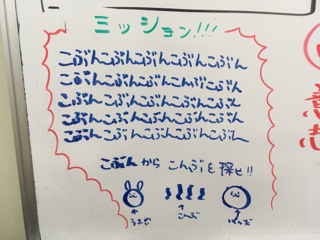 ミッション!!!
こぶんこぶんこぶんこぶんこぶん
こぶんこぶんこぶんこんぶこぶん
こぶんこぶんこぶんこぶんこぶん
こぶんこぶんこぶんこぶんこぶん
こぶんこぶんこぶんこぶんこぶん
こぶんから こんぶを探せ!!
うさぎ こんぶ ぱんだ